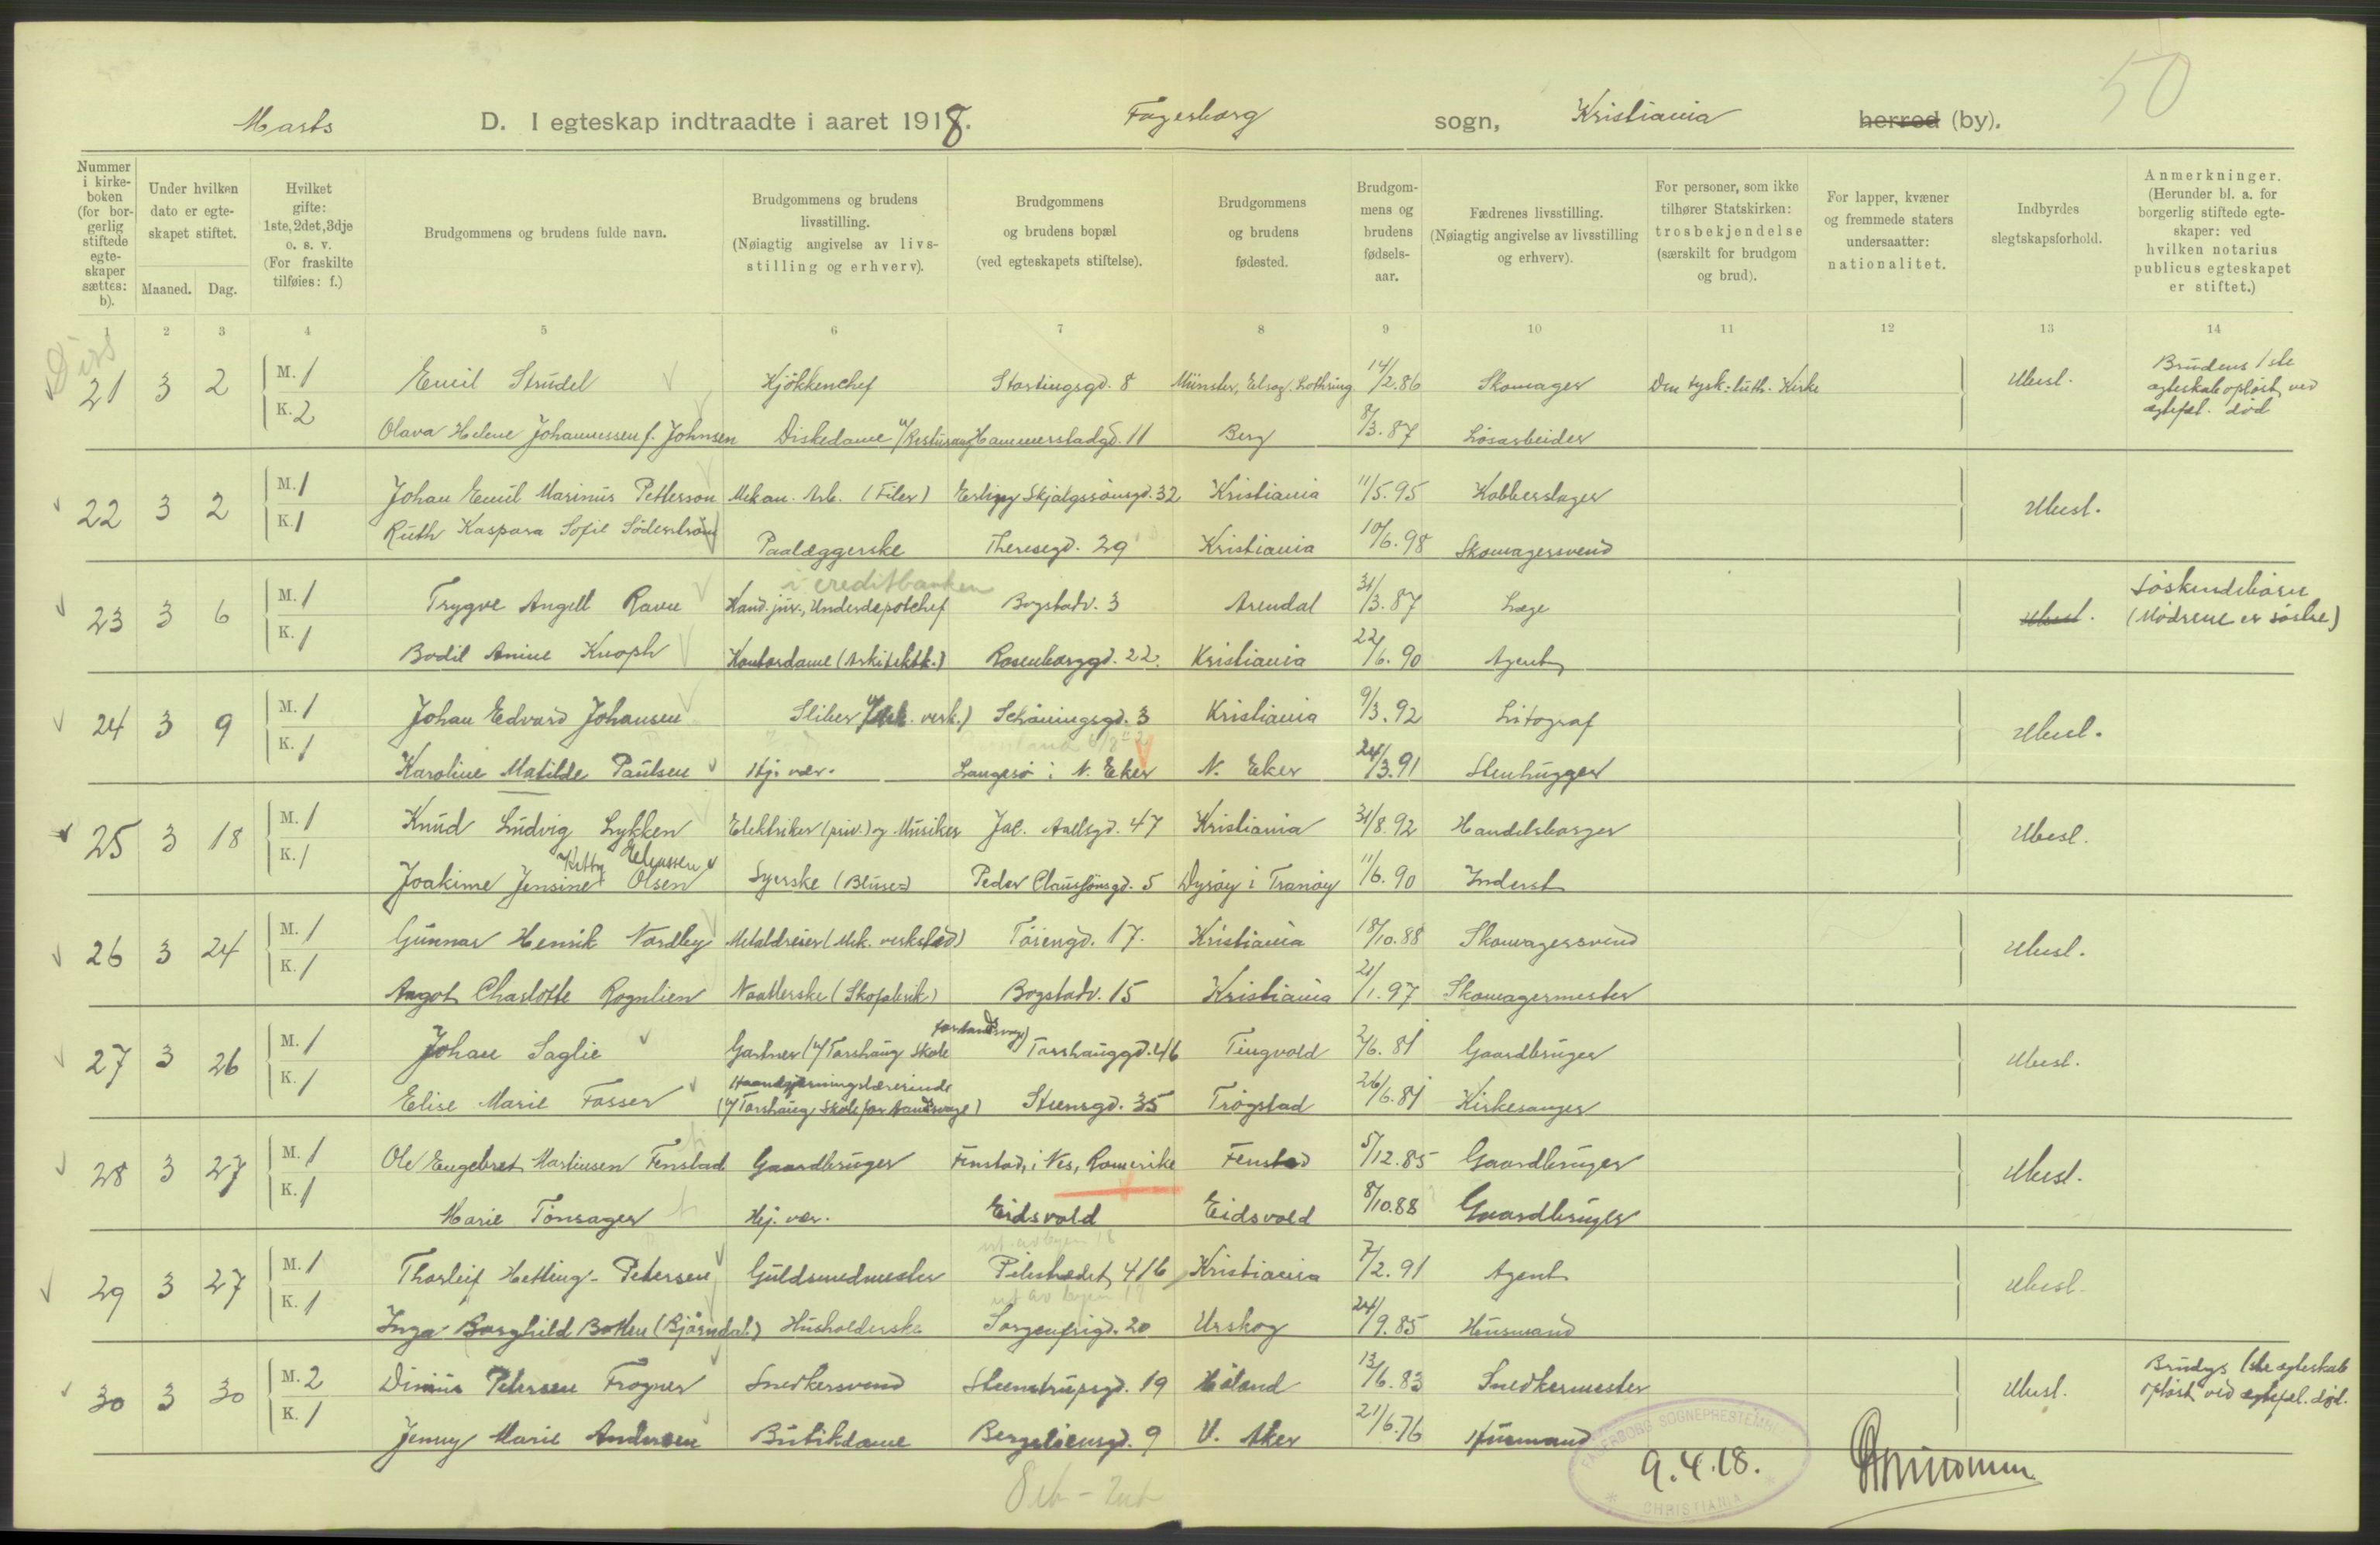 50
Marts D. I egteskap indtraadte i aaret 1918. Fagerborg sogn, Kristiania herred (by).
Nummer i kirkeboken (for borgerlig stiftede egteskaper sættes: b).
Under hvilken dato er egteskapet stiftet.
Maaned. Dag.
Hvilket gifte: 1ste, 2det, 3dje o. s. v. (For fraskilte tilføies: f.)
Brudgommens og brudens fulde navn.
Brudgommens og brudens livsstilling. (Nøiagtig angivelse av livsstilling og erhverv).
Brudgommens og brudens bopæl (ved egteskapets stiftelse).
Brudgommens og brudens fødested.
Brudgommens og brudens fødselsaar.
Fædrenes livsstilling. (Nøiagtig angivelse av livsstilling og erhverv).
For personer, som ikke tilhører Statskirken: trosbekjendelse (særskilt for brudgom og brud).
For lapper, kvæner og fremmede staters undersaatter: nationalitet.
Indbyrdes slegtskapsforhold.
Anmerkninger. (Herunder bl. a. for borgerlig stiftede egteskaper: ved hvilken notarius publicus egteskapet er stiftet.)
1 2 3 4 5 6 7 8 9 10 11 12 13 14
21 3 2 M. 1 Emil Strudel Kjökkenchef Stortingsgd. 8 Münster, Elsas. Lothring. 14/2.86 Skomager Den tysk-luth. Kirke Ubesl. Brudens 1ste egteskab opløst ved egtefæl. död
K. 2 Olava Helene Johannessen f. Johnsen Diskedame Hammerstadgd. 11 Berg 8/3.87 Løsarbeider
22 3 2 M. 1 Johan Emil Marinus Petterson Mekan. Arb. (Filer) Erling Skjalgssønsgd. 32 Kristiania 11/5.95 Kobberslager Ubesl.
K. 1 Ruth Kaspara Sofie Söderström Paalæggerske Theresegd. 29 Kristiania 10/6.98 Skomagersvend
i creditbanken
23 3 6 M. 1 Trygve Angell Ravn Kand. jur., Underdepotchef Bogstadv. 3 Arendal 31/3.87 Læge Ubesl. Söskendebörn (Mödrene er söstre)
K. 1 Bodil Anine Knoph Kontordame (Arkitektk.) Rosenborggd. 22. Kristiania 22/6.90 Agent
24 3 9 M. 1 Johan Edvard Johansen Sliber (Mek. verk.) Schöningsgd. 3 Kristiania 9/3.92 Litograf Ubesl.
K. 1 Karoline Matilde Paulsen Hj. vær. Langesö i N. Eker N. Eker 24/3.91 Stenhugger
25 3 18 M. 1 Knud Ludvig Lykken Elektriker (priv.) og Musiker Jac. Aallsgd. 47 Kristiania 31/8.92 Handelsborger Ubesl.
Kitty Eliassen
K. 1 Joakime Jensine Olsen Syerske (Bluse=) Peder Claussönsgd. 5 Dyröy i Tranöy 11/6.90 Inderst
26 3 24 M. 1 Gunnar Henrik Nordby Metaldreier (Mek. verksted) Töiengd. 17. Kristiania 18/10.88 Skomagersvend Ubesl.
K. 1 Aagot Charlotte Rognlien Naatlerske (Skofabrik.) Bogstadv. 15 Kristiania 21/1.97 Skomagermester
27 3 26 M. 1 Johan Saglie Gartner (v/ Torshaug Skole for Aandssvage) Torshauggd. 46 Tingvold 2/6.81 Gaardbruger Ubesl.
K. 1 Elise Marie Fosser Haandgjerningslærerinde (v/ Torshaug Skole for Aandssvage) Stensgd. 35 Trögstad 26/6.81 Kirkesanger
28 3 27 M. 1 Ole Engebret Martinsen Fenstad Gaardbruger Fenstad, i Nes, Romerike Fenstad 5/12.85 Gaardbruger Ubesl.
K. 1 Marie Tönsager Hj. vær. Eidsvold Eidsvold 8/10.88 Gaardbruger
29 3 27 M. 1 Thorleif Hetting-Petersen Guldsmedmester Pilestrædet 41b Kristiania 7/2.91 Agent Ubesl.
K. 1 Inga Borghild Botten (Björndal) Husholderske Sorgenfrigd. 20 Urskog 24/9.85 Husmand
30 3 30 M. 2 Petersen Frogner Snedkersvend Steenstrupsgd. 19 Höland 13/6.83 Snedkermester Ubesl. Brudgs 1ste egteskab opløst ved egtefæl. död.
K. 1 Jenny Marie Andersen Butikdame Bergsliensgd. 9 V. Aker 21/6.76 Husmand
FAGERBORG SOGNEPRESTEMB. CHRISTIANIA
9.4.18.